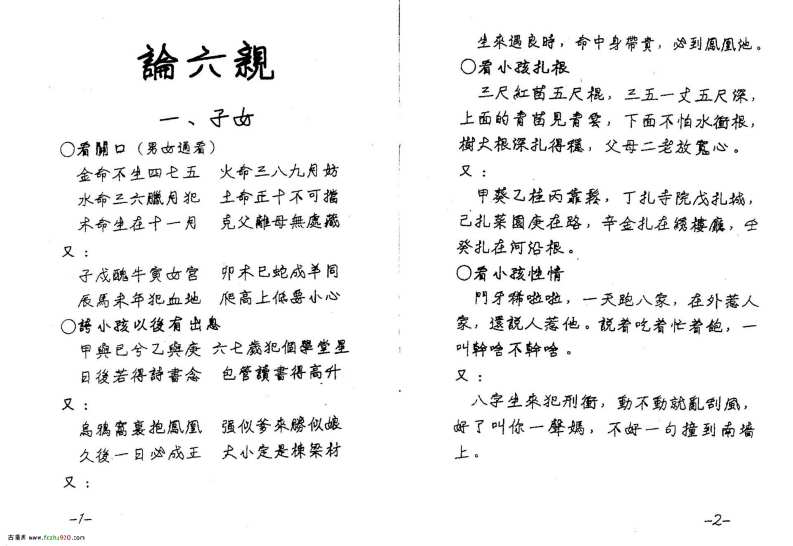 論六親
一、子女
○看開口（男女通看）
金命不生四七五　火命三八九月妨
水命三六臘月犯　土命正十不可擋
木命生在十一月　克父離母無處藏
又：
子戌醜牛寅女宫　卯未巳蛇成羊同
辰馬未年犯血地　爬高上低要小心
○誇小孩以後有出息
甲與巳兮乙與庚　六七歲犯個學堂星
日後若得詩書念　包管讀書得高升
又：
烏鴉窩裏抱鳳凰　强似爹來勝似娘
久後一日必成王　大小定是棟梁材
又：
-1-
生來遇良時，命中身帶貴，必到鳳凰池。
○看小孩扎根
三尺紅苗五尺棍，三五一丈五尺深，
上面的青苗見青雲，下面不怕水衝根，
樹大根深扎得穩，父母二老放寬心。
又：
甲葵乙桂丙靠鬆，丁扎寺院戊扎城，
己扎菜園庚在路，辛金扎在綉樓廳，壬
癸扎在河沿根。
○看小孩性情
門牙稀啦啦，一天跑八家，在外惹人
家，還説人惹他。説着吃着忙着飽，一
叫幹啥不幹啥。
又：
八字生來犯刑衝，動不動就亂刮風，
好了叫你一聲媽，不好一句撞到南墻
上。
-2-
古籍库 www.fczhu920.com